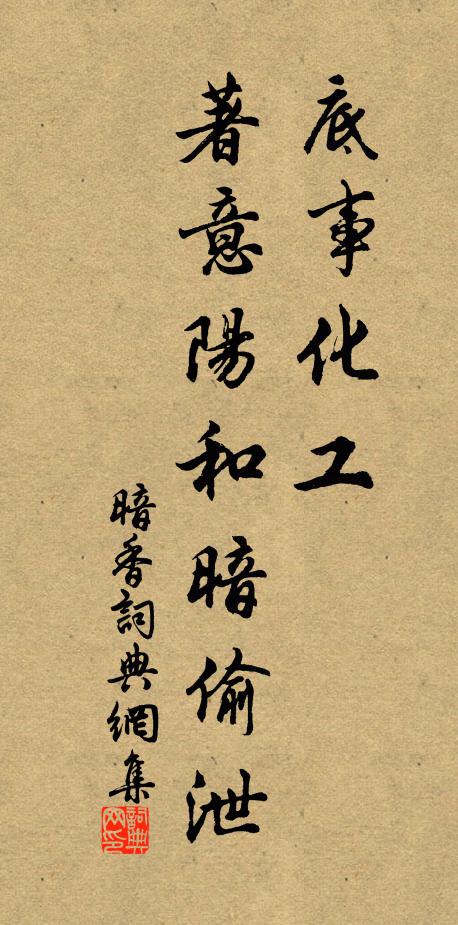 底事化工
著意陽和暗偷泄
暗香詞典網集
詞典
网印